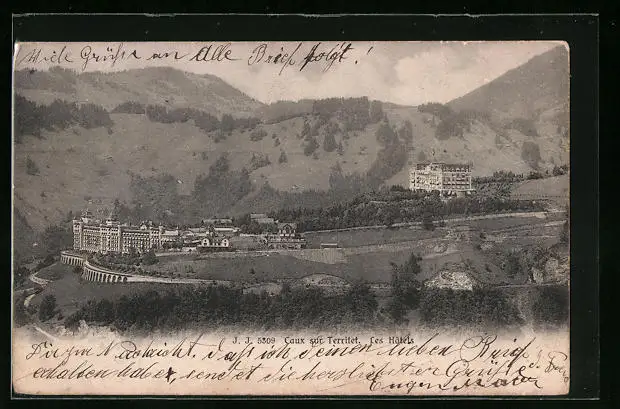 Viele Grüsse an Alle Brief folgt!
J. J. 5309 Caux sur Territet. Les Hôtels
Dir zur Nachricht, dass ich deinen lieben Brief
erhalten habe, sendet die herzlichsten Grüsse dein
Eugen